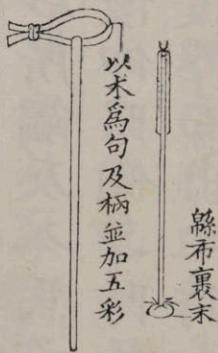 緜布裹末
以木爲句及柄並加五彩